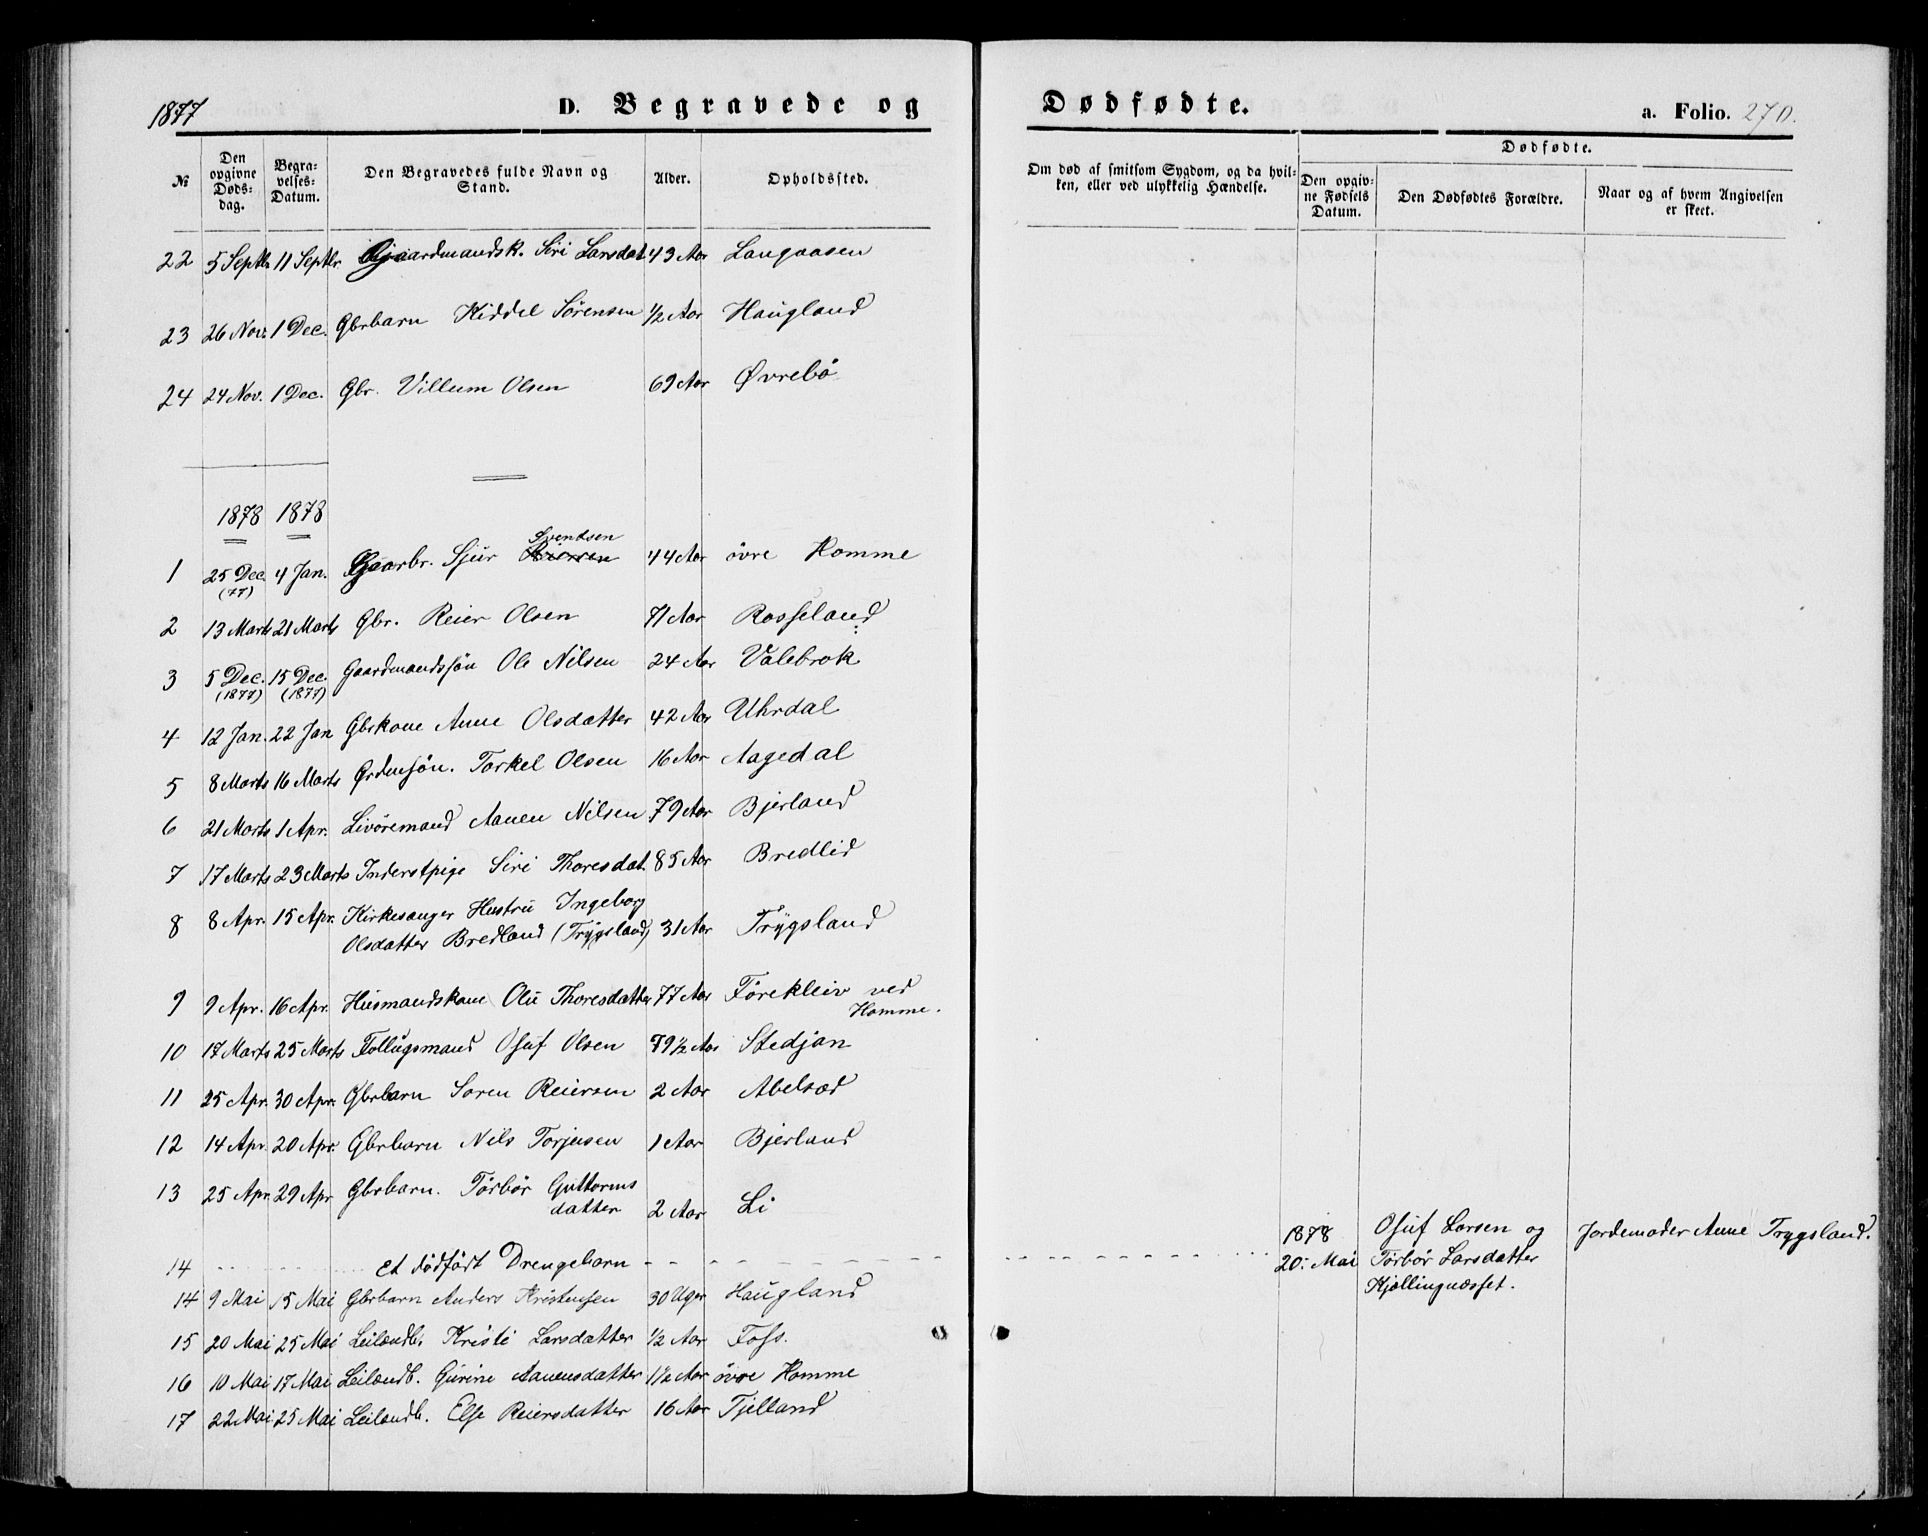 1877
D. Begravede og Dødfødte.
a. Folio. 270.
№ | Den opgivne Døds-dag. | Begra-velses-Datum. | Den Begravedes fulde Navn og Stand. | Alder. | Opholdssted. | Om død af smitsom Sygdom, og da hvil-ken, eller ved ulykkelig Hændelse. | Dødfødte. | Den opgiv-ne Fødsels Datum. | Den Dødfødtes Forældre. | Naar og af hvem Angivelsen er skeet.
22 5 Septbr 11 Septbr. Gaardmandsk. Siri Larsdat 43 Aar Langaasen
23 26 Nov. 1 Dec. Gbrbarn Kiddel Sørensen 1/2 Aar Haugland
24 24 Nov. 1 Dec. Gbr. Villum Olsen 69 Aar Øvrebö
1878 1878
Svendsen
1 25 Dec. 4 Jan. Gaarbr. Sjur 44 Aar övre Homme
(77)
2 13 Marts 21 Marts Gbr. Reier Olsen 71 Aar Rosseland
3 5 Dec. 15 Dec. Gaardmandssön Ole Nilsen 24 Aar Valebrok
(1877) (1877)
4 12 Jan. 22 Jan Gbrkone Anne Olsdatter 42 Aar Uhrdal
5 8 Marts 16 Marts Grdmsön. Torkel Olsen 16 Aar Aagedal
6 21 Marts 1 Apr. Livöremand Aanen Nilsen 79 Aar Bjerland
7 17 Marts 23 Marts Inderstpige Siri Thoresdat. 85 Aar Bredlid
8 8 Apr. 15 Apr. Kirkesanger Hustru Ingeborg
Olsdatter Bredland (Trygsland) 31 Aar Trygsland
9 9 Apr. 16 Apr. Husmandskone Olu Thoresdatter 77 Aar Förekleiv ved
Homme.
10 17 Marts 25 Marts Follugsmand Osuf Olsen 79 1/2 Aar Stedjan
11 25 Apr. 30 Apr. Gbrbarn Soren Reiersen 2 Aar Abelsæd
12 14 Apr. 20 Apr. Gbrbarn Nils Torjusen 1 Aar Bjerland
13 25 Apr 29 Apr Gbrbarn. Törbör Guttorms
datter 2 Aar Li
1878 Osuf Larsen og Jordemoder Anne Trygsland.
14 Et dödfödt Drengebarn 20: Mai Törbör Larsdatter
Kjællingnæsset.
14 9 Mai 15 Mai Gbrbarn Anders Kristensen 30 Uger Haugland
15 20 Mai 25 Mai Leilændb. Kristi Larsdatter 1/2 Aar Foss.
16 10 Mai 17 Mai Leilændb. Gurine Aanensdatter 1 1/2 Aar övre Homme
17 22 Mai 25 Mai Leilændb. Else Reiersdatter 16 Aar Tjelland